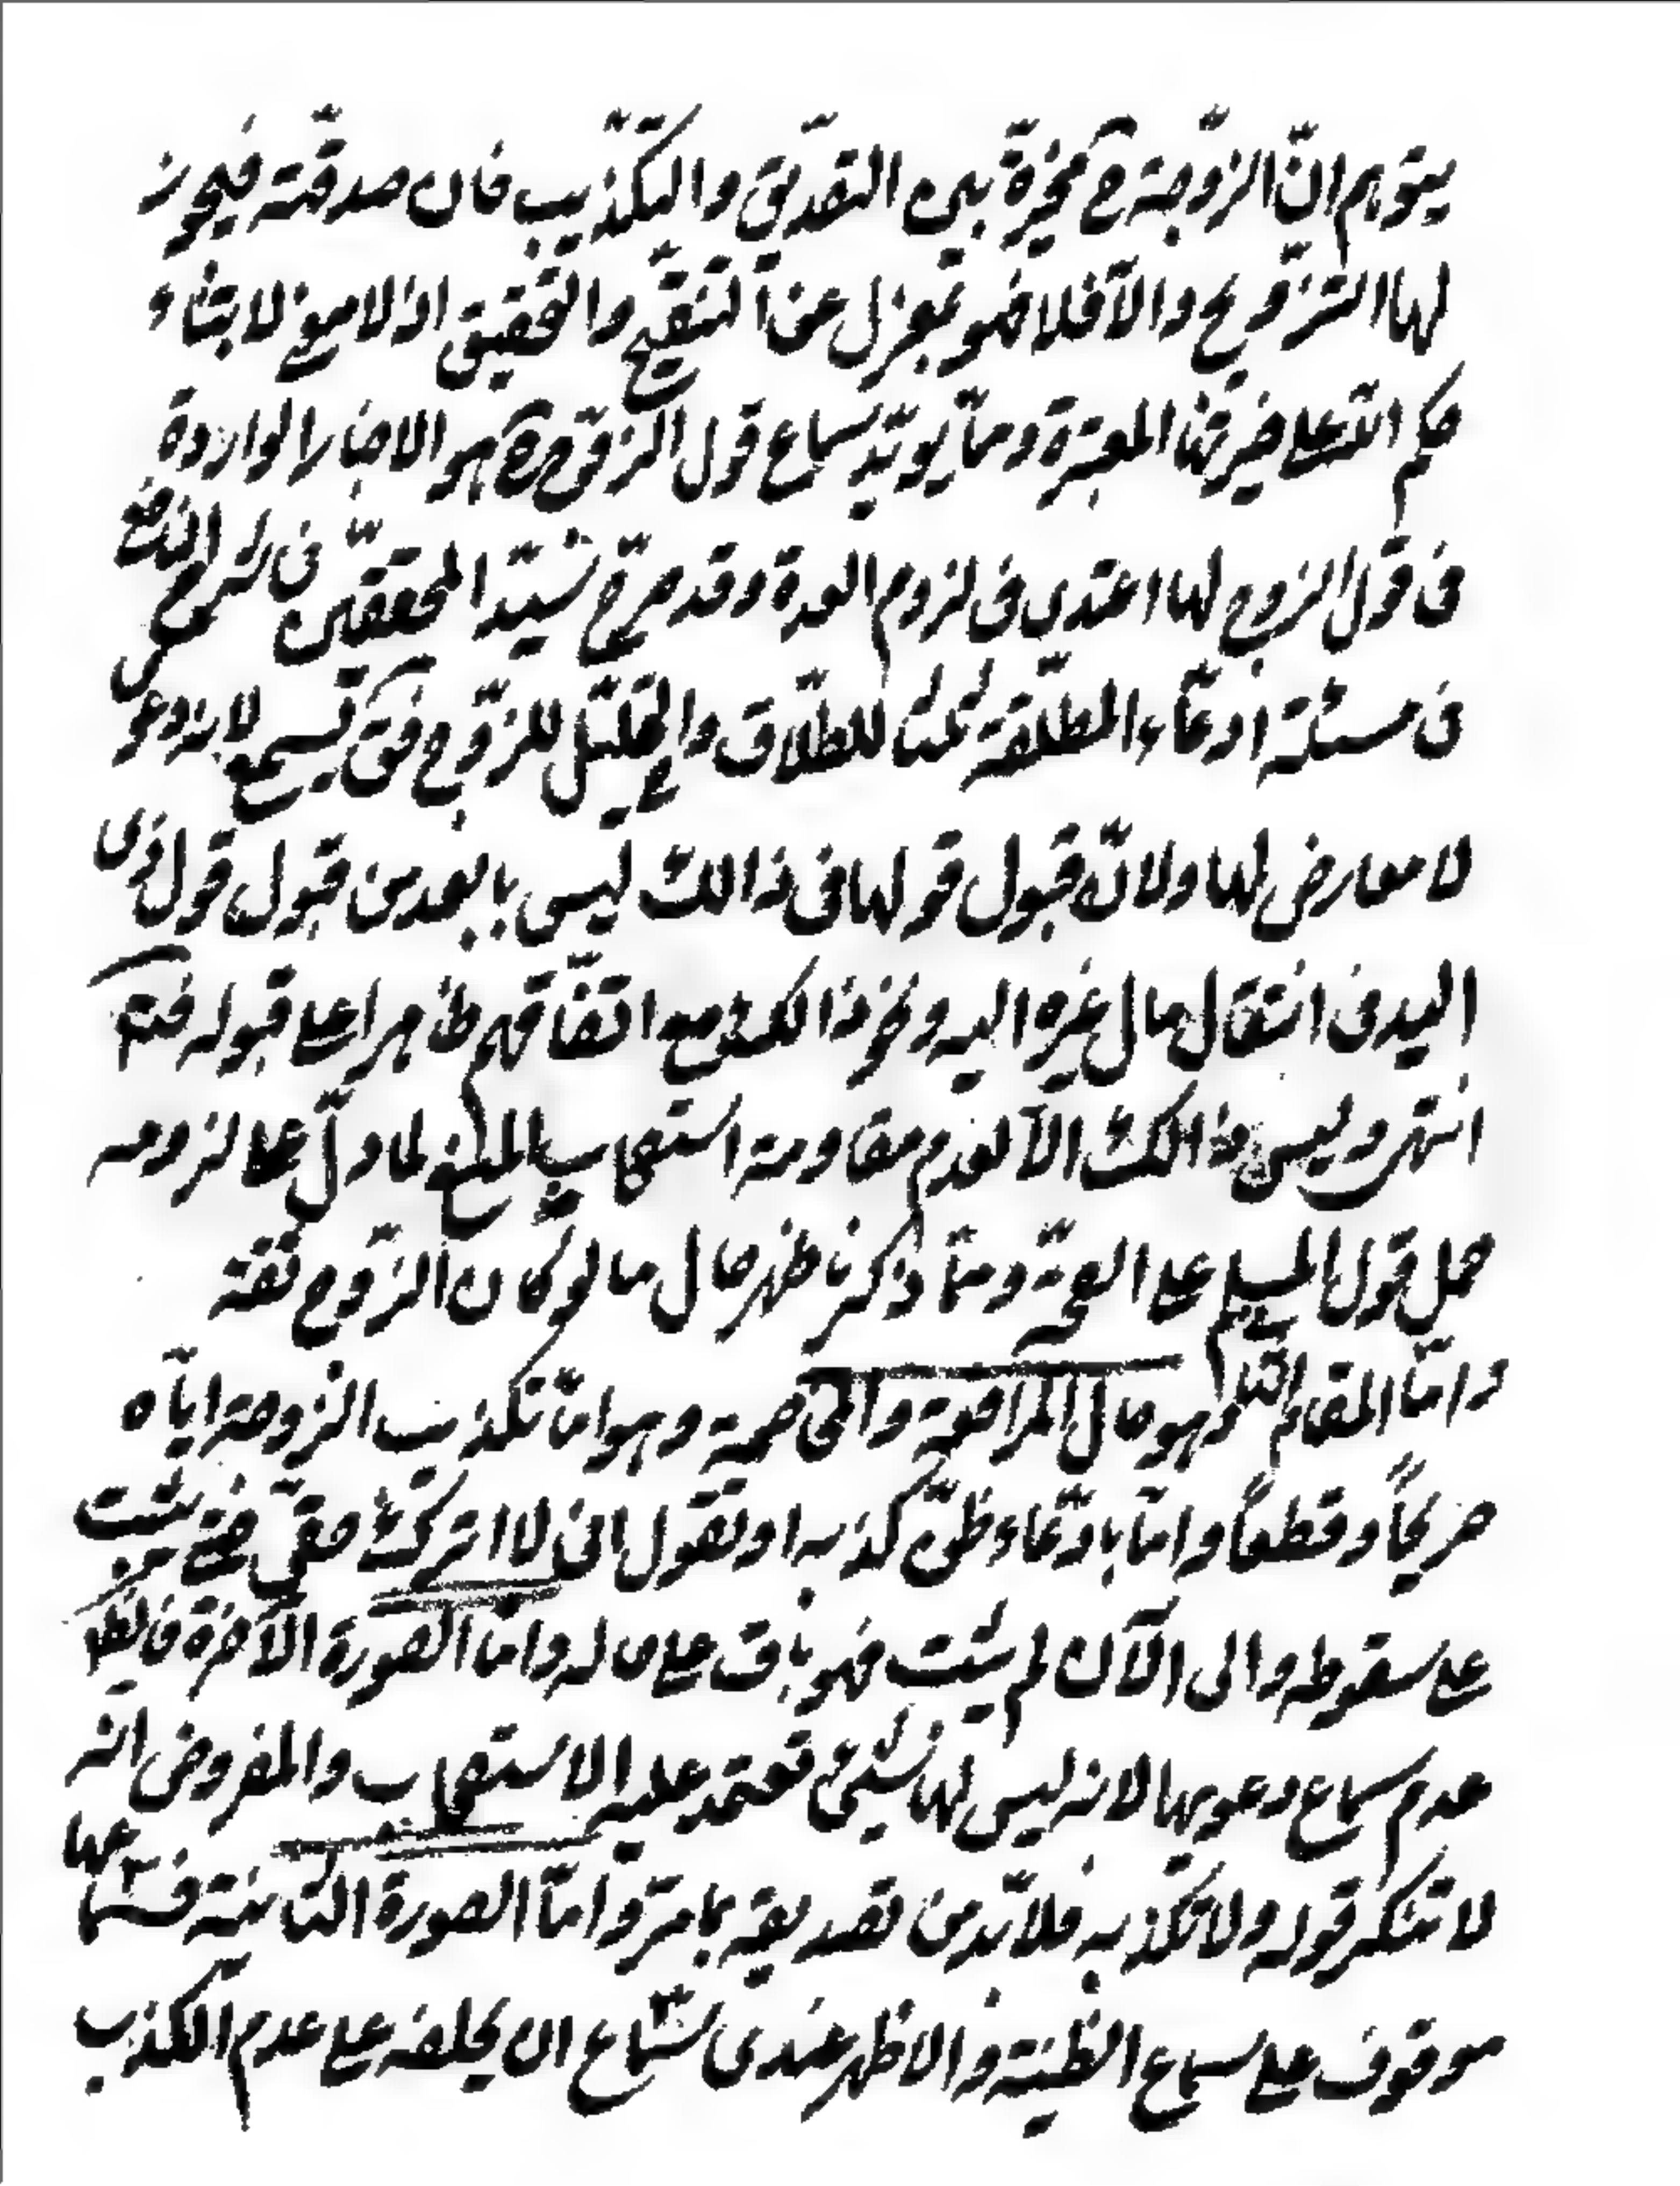 يتوهم انّ الزّوجة ح مخيّرة بين التصديق والتّكذيب فان صدقّته فيجوز
لها التّزويج والّا فلا فهو بمعزل عن التّنقيح والتّحقيق اذ لا معنى لابتناء
حكم اللّه على المعتبرة وممّا يؤيّد سماع قول الزّوج هو الاخبار الواردة
فى قول الزوج لها اعتدى فى لزوم العدة وقد صرّح سيّد المحققّين فى شرح النافع
فى مسئلة ادعّاء المطلّقة ثلثا للطلّاق والتّحليل للزّوج فق تسمع لانه دعوى
لا معارض لها ولانّ قبول قولها فى ذالك ليس بابعد من قبول قول ذى
اليد فى انتقال مال غيره اليه ونحو ذالك ومع اتّفاقهم ظاهرا على قبوله فت
انتهى وليس ذالك الّا لعدم مقاومة استصحاب المنع لما دلّ على لزوم
حمل قول المسلم على الصحّة وممّا ذكرنا ظهر حال ما لو كان الزّوج ثقة
وامّا المقام الثانى وهو حال المرافعة والمخاصمة وهو امّا تكذيب الزوجة ايّاه
صريحًا وقطعًا وامّا بادعّاء ظنّ كذبه او تقول انى لا اترك حقىّ حتى يثبت
على سقوطه والى الآن لم يثبت فهو باق على حاله وامّا الصّورة الآخرة فالظّ
عدم سماع دعويها لانه ليس لها شيئ تعتمد عليه الا استصحاب والمفروض انه
لا تنكر قوله ولا تكذبه فلا بّد من تصديقه بما مرّ وامّا الصورة الثّانية فسماعها
موقوف على سماع الظنيّة والاظهر عندى سماع ان يحلفه على عدم الكذب